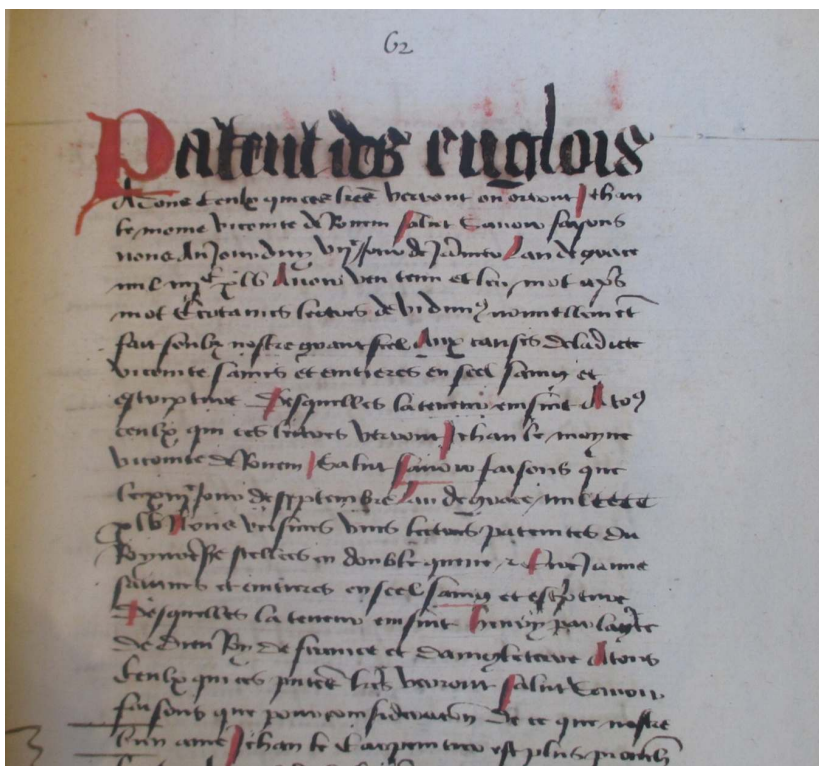 62
Patent des englois
A tous ceulx qui ces lrẽs verront ou orront Jehan
le moine viconte de Rouen salut Savoir faisons
nous Au jourduy viiᵉ jour de Lan de grace
mil iiiiᶜ xlv Avoir veu tenu et leu mot apṣ̃
mot Certaines lectres de vidimꝰ nouvellemẽt
fait soubz nostre grant seel Aux causes de ladicte
viconte saines et entieres en seel saing et
escripture Desquelles la teneur ensuit A toꝰ
ceulx qui ces lectres verront Jehan le moyne
viconte de Rouen Salut Savoir faisons que
le jour de septembre Lan de grace mil cccc
xlv Nous veismes unes lectres patentes du
Roy nrẽ sire seellees en double queue et cire jaune
saines et entieres en seel saing et escripture
Desquelles la teneur ensuit Henry par la grace
de dieu Roy de france et dangleterre A tous
ceulx qui ces pñtes lrẽs verront salut Savoir
faisons que pour consideracõn de ce que nostre
bien amé Jehan le Carpentier est plus